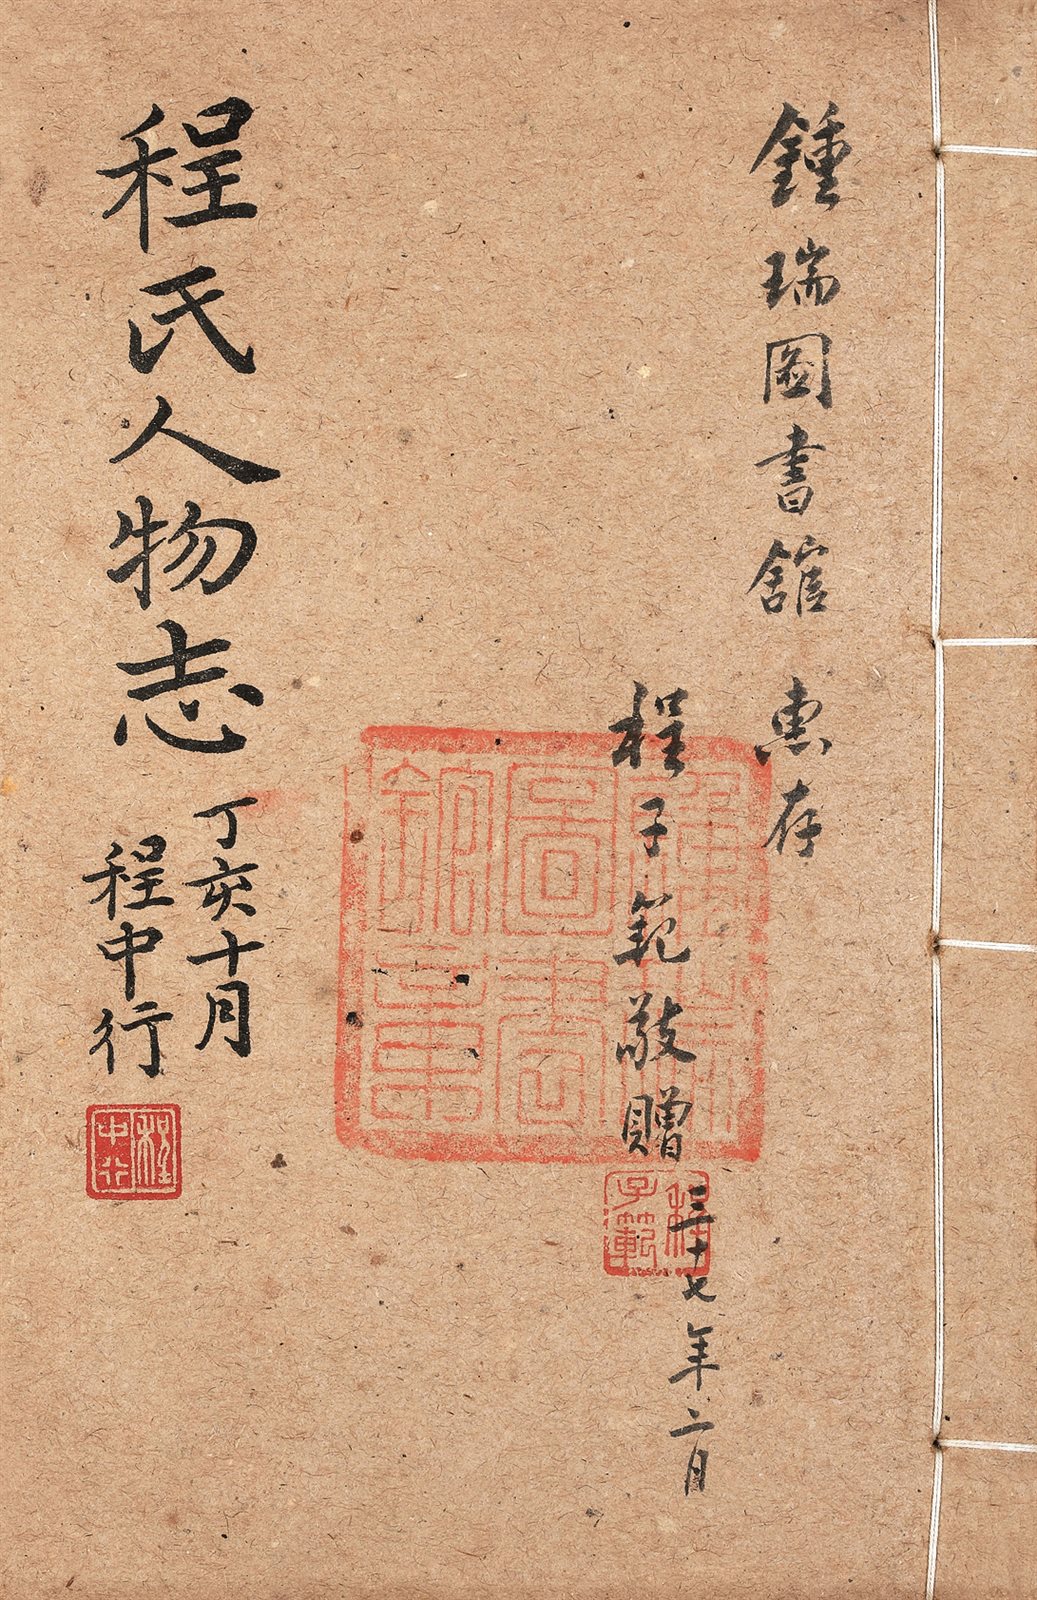 鍾瑞圖書館 惠存
程子範敬贈
三十七年二月
鍾瑞
圖書
館章
程
子範
程氏人物志
丁亥十月
程中行
程
中行